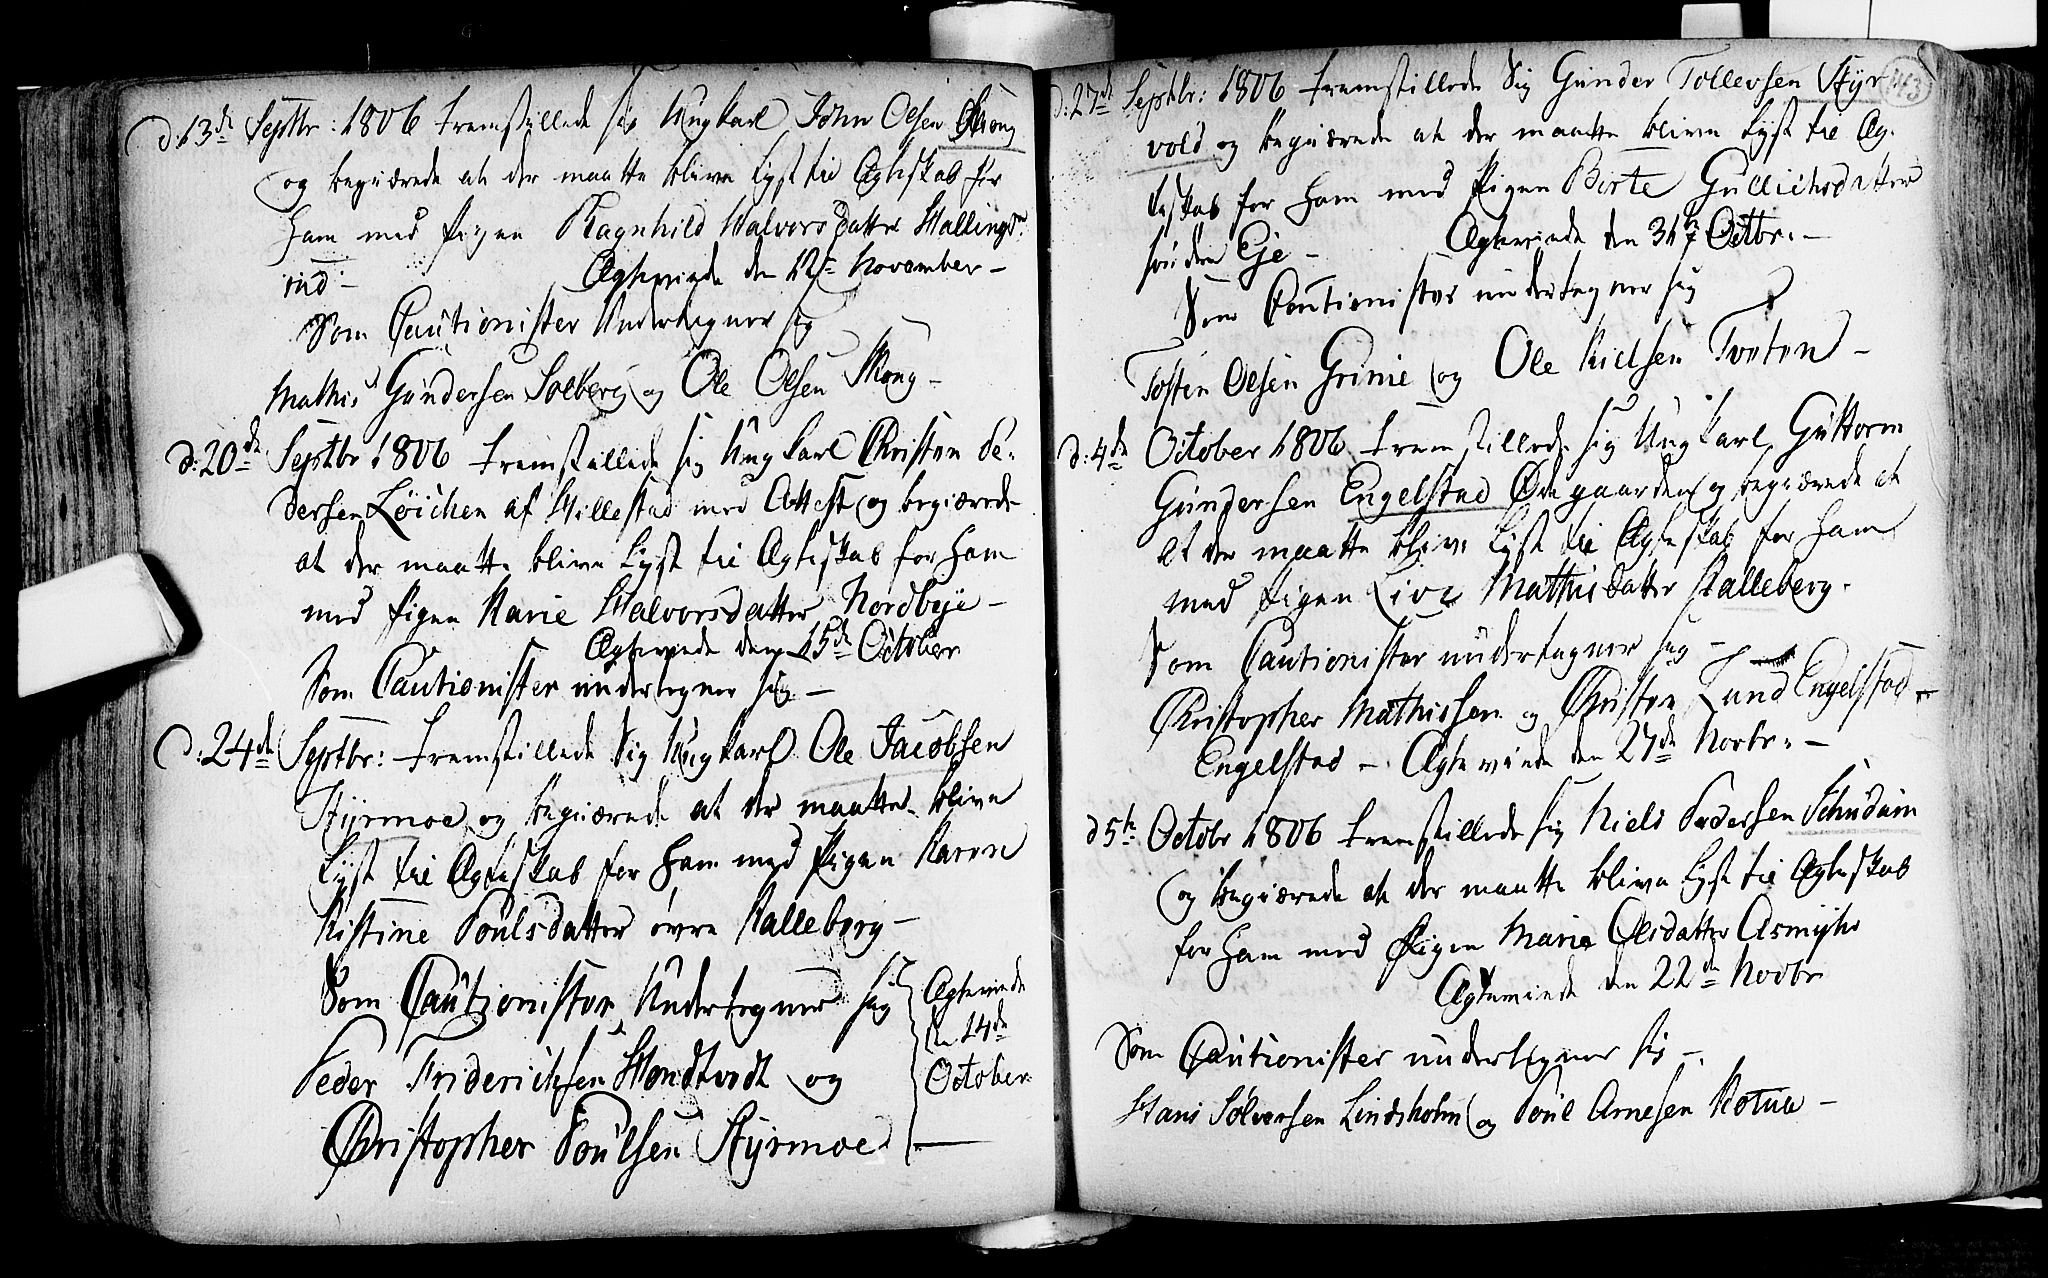 d: 13de Septbr: 1806 fremstillede sig Ungkarl John Olsen Skoug
og begiærede at der maatte blive lyst til Ægteskab for
ham med Pigen Ragnhild Halvorsdatter Hallings-
rud - Ægteviede den 12te November -
Som Cautionister Undertegner sig
Mathis Gundersen Solberg og Ole Olsen Skoug -
d: 20de Septbr 1806 fremstillede sig Ungkarl Christen Pe-
dersen Löichen af Hillestad med Attest og begiærede
at der maatte blive lyst til Ægteskab for ham
med Pigen Marie Halvorsdatter Nordbye -
Ægteviede den 15de October
Som Cautionister undertegner sig -
d: 24de Septbr: fremstillede sig Ungkarl Ole Jacobsen
Styrmoe og begiærede at der maatte blive
lyst til Ægteskab for ham med Pigen Karen
Kistine Poulsdatter övre Kalleberg -
Som Cautionister Undertegner sig
Peder Friderichsen Hondtvedt og
Christopher Poulsen Styrmoe
Ægteviede
den 14de
October
443
d: 27de Septbr: 1806 fremstillede sig Gunder Tollevsen Styr-
vold og begiærede at der maatte blive lyst til Æg-
teskab for ham med Pigen Berte Gullichsdatter
Söndre Eje - Ægteviede den Octbr: -
Som Cautionister undertegner sig
Tosten Olsen Grinie og Ole Nielsen Tveten -
d: 4de October 1806 fremstillede sig Ungkarl Guttorm
Gundersen Engelstad Ödegaarden og begiærede at
at der maatte blive lyst til Ægteskab for ham
med Pigen Live Mathisdatter Kalleberg.
Som Cautionister undertegner sig -
Christopher Mathissen og Christen Lund Engelstad -
Engelstad - Ægteviede den 27de Novbr: -
d 5te Octobr 1806 fremstillede sig Niels Pedersen Schudain
og begiærede at der maatte blive lyst til Ægteskab
for ham med Pigen Marie Olsdatter Asmyhr
Ægteviede den 22de Novbr
Som Cautionister undertegner sig -
Hans Sölversen Lindsholm og Poul Arnesen Kotua -